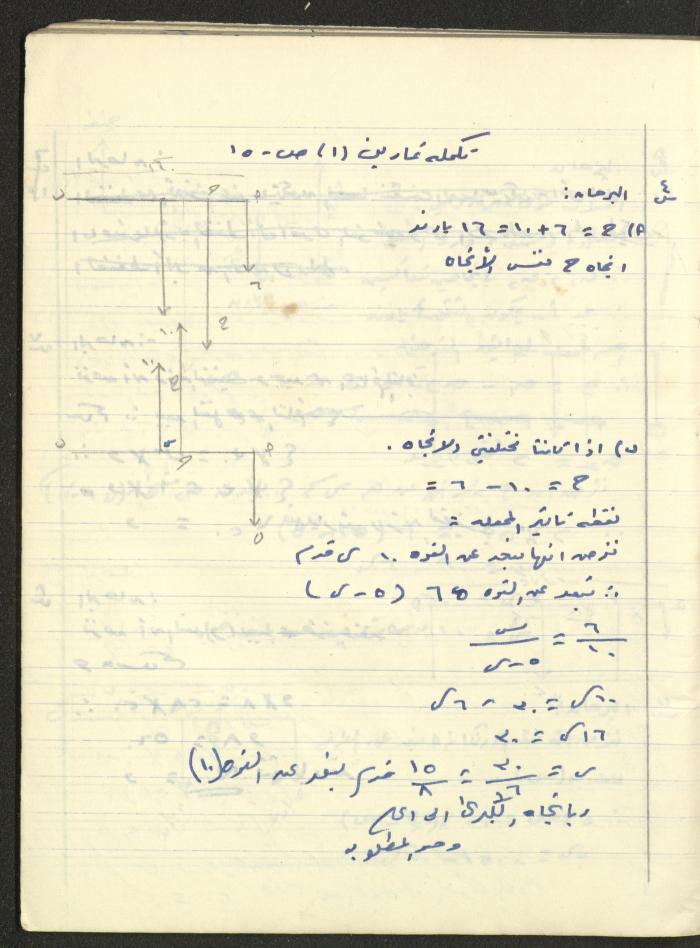 تكملة تمارين (١) ص ١٥
س٤
البرهان:
ح = ٦ + ١٠ = ١٦ باوند
اتجاه ح نفس الأتجاه
ب) اذا كانتا مختلفتي الاتجاه.
ح = ١٠ - ٦ =
نقطة تأثير المحصلة =
نفرض انها تبعد عن القوة ١٠ س قدم
∴ تبعد عن القوة ٦ (٥ - س)
٦/١٠ = س/(٥ - س)
١٠س = ٣٠ - ٦س
١٦س = ٣٠
س = ٣٠/١٦ = ١٥/٨ قدم بعدها عن القوة (١٠)
وباتجاه الكبرى الى اعلى
وهو المطلوب